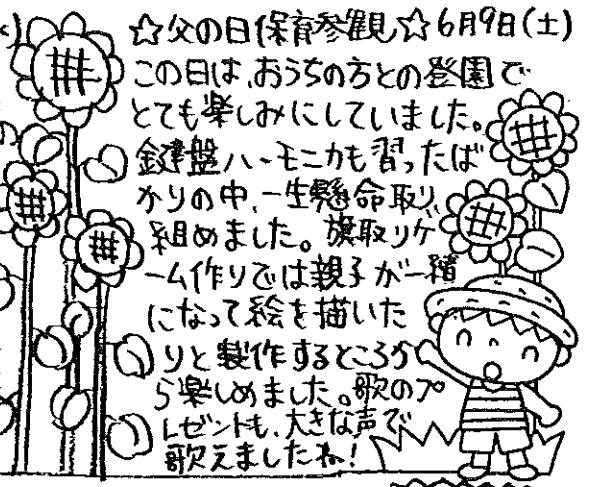 ☆父の日保育参観☆6月9日(土)
この日は、おうちの方との登園で
とても楽しみにしていました。
鍵盤ハーモニカも習ったば
かりの中、一生懸命取り
組めました。旗取りゲ
ーム作りでは親子が一緒
になって絵を描いた
りと製作するところか
ら楽しめました。歌のプ
レゼントも、大きな声で
歌えましたね!